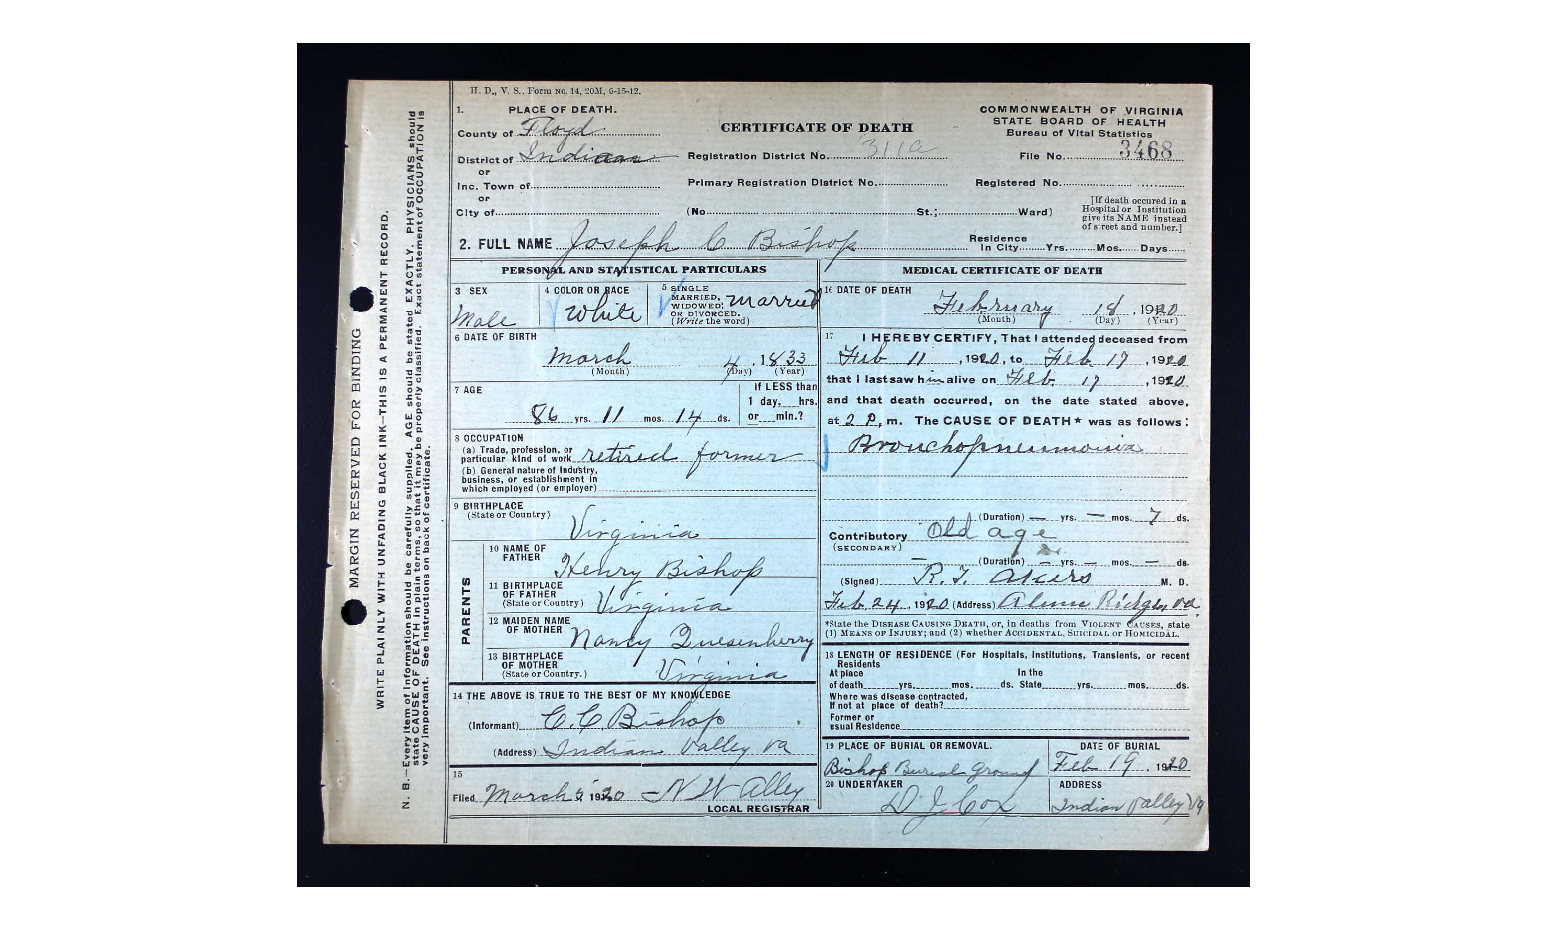 H. D., V. S., Form No. 14, 20M, 6-15-12.
1. PLACE OF DEATH.
County of Floyd
District of Indian
or
Inc. Town of
or
City of
CERTIFICATE OF DEATH
Registration District No. 311a
Primary Registration District No.
(No. St.; Ward)
COMMONWEALTH OF VIRGINIA
STATE BOARD OF HEALTH
Bureau of Vital Statistics
File No. 3468
Registered No.
[If death occured in a
Hospital or Institution
give its NAME instead
of street and number.]
2. FULL NAME Joseph C Bishop
Residence
In City Yrs. Mos. Days
PERSONAL AND STATISTICAL PARTICULARS
3 SEX
Male
4 COLOR OR RACE
White
5 SINGLE
MARRIED,
WIDOWED,
OR DIVORCED.
(Write the word)
Married
6 DATE OF BIRTH
March 4, 1833
(Month) (Day) (Year)
7 AGE
86 yrs. 11 mos. 14 ds.
If LESS than
1 day, hrs.
or min.?
8 OCCUPATION
(a) Trade, profession, or
particular kind of work retired farmer
(b) General nature of Industry,
business, or establishment in
which employed (or employer)
9 BIRTHPLACE
(State or Country)
Virginia
PARENTS
10 NAME OF
FATHER
Henry Bishop
11 BIRTHPLACE
OF FATHER
(State or Country)
Virginia
12 MAIDEN NAME
OF MOTHER
Nancy Quesenberry
13 BIRTHPLACE
OF MOTHER
(State or Country.)
Virginia
14 THE ABOVE IS TRUE TO THE BEST OF MY KNOWLEDGE
(Informant) C. C Bishop
(Address) Indian Valley Va
15
Filed March 5, 1920 N W Alley
LOCAL REGISTRAR
MEDICAL CERTIFICATE OF DEATH
16 DATE OF DEATH
February 18, 1920
(Month) (Day) (Year)
17 I HEREBY CERTIFY, That I attended deceased from
Feb 11, 1920, to Feb 17, 1920
that I last saw him alive on Feb 17, 1920
and that death occurred, on the date stated above,
at 2 P, m. The CAUSE OF DEATH* was as follows:
Bronchopneumonia
(Duration) — yrs. — mos. 7 ds.
Contributory Old age
(SECONDARY)
(Duration) — yrs. — mos. — ds.
(Signed) R. T. Akers M. D.
Feb. 24, 1920 (Address) Alum Ridge, Va
*State the DISEASE CAUSING DEATH, or, in deaths from VIOLENT CAUSES, state
(1) MEANS OF INJURY; and (2) whether ACCIDENTAL, SUICIDAL or HOMICIDAL.
18 LENGTH OF RESIDENCE (For Hospitals, Institutions, Transients, or recent
Residents
At place In the
of death yrs. mos. ds. State yrs. mos. ds.
Where was disease contracted,
If not at place of death?
Former or
usual Residence
19 PLACE OF BURIAL OR REMOVAL.
Bishop Burial Ground
DATE OF BURIAL
Feb 19, 1920
20 UNDERTAKER
D J Cox
ADDRESS
Indian Valley Va
MARGIN RESERVED FOR BINDING
WRITE PLAINLY WITH UNFADING BLACK INK—THIS IS A PERMANENT RECORD.
N. B.—Every item of information should be carefully supplied. AGE should be stated EXACTLY. PHYSICIANS should
state CAUSE OF DEATH in plain terms, so that it may be properly classified. Exact statement of OCCUPATION is
very important. See instructions on back of certificate.